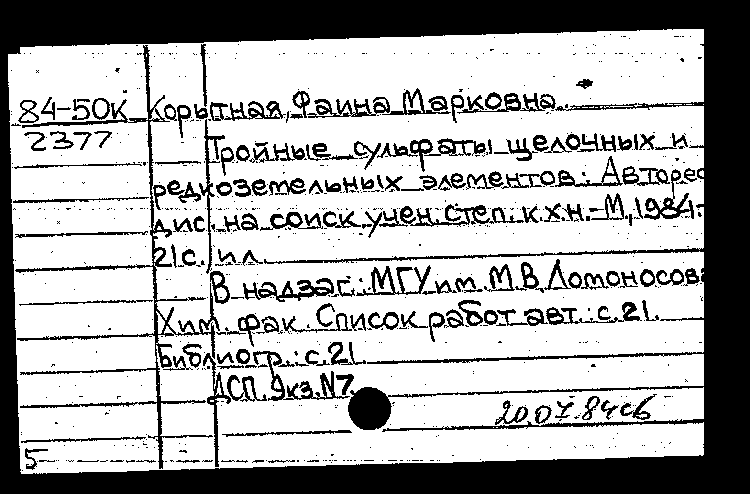 84-50К Корытная, Фаина Марковна
2377
Тройные сульфаты щелочных и
редкоземельных элементов: Авторес
дис. на соиск. учен. степ. к.х.н.-М, 1984.-
21с. ил.
В надзаг.: МГУ им. М.В. Ломоносова
Хим. фак. Список работ авт.: с. 21.
Библиогр.: с. 21
ДСП. Экз. N7
20.07.84 сб
5